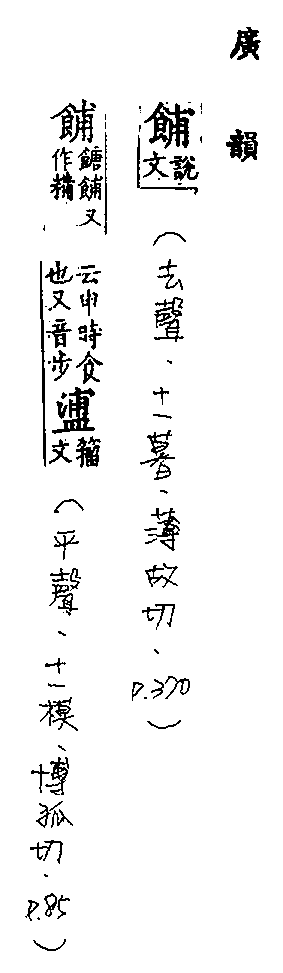 廣韻
餔說文(去聲．十一暮．薄故切．P.370)
餔餹餔又作䊇云申時食也又音步𥂈籀文(平聲．十一模．博孤切．P.85)